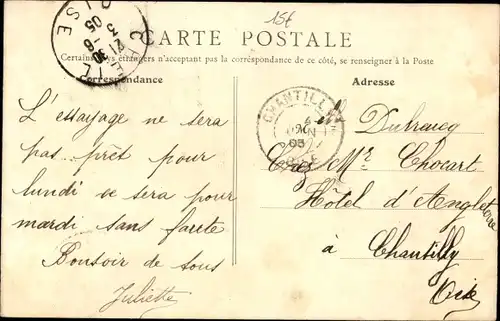 15f
CARTE POSTALE
Certains pays étrangers n'acceptant pas la correspondance de ce côté, se renseigner à la Poste
Correspondance
Adresse
CHANTILLY
05
L'essayage ne sera
pas prêt pour
lundi ce sera pour
mardi sans faute
Bonsoir de tous
Juliette
Melle Dubracq
Chez Mr Chocart
Hôtel d'Angleterre
à Chantilly
Oise